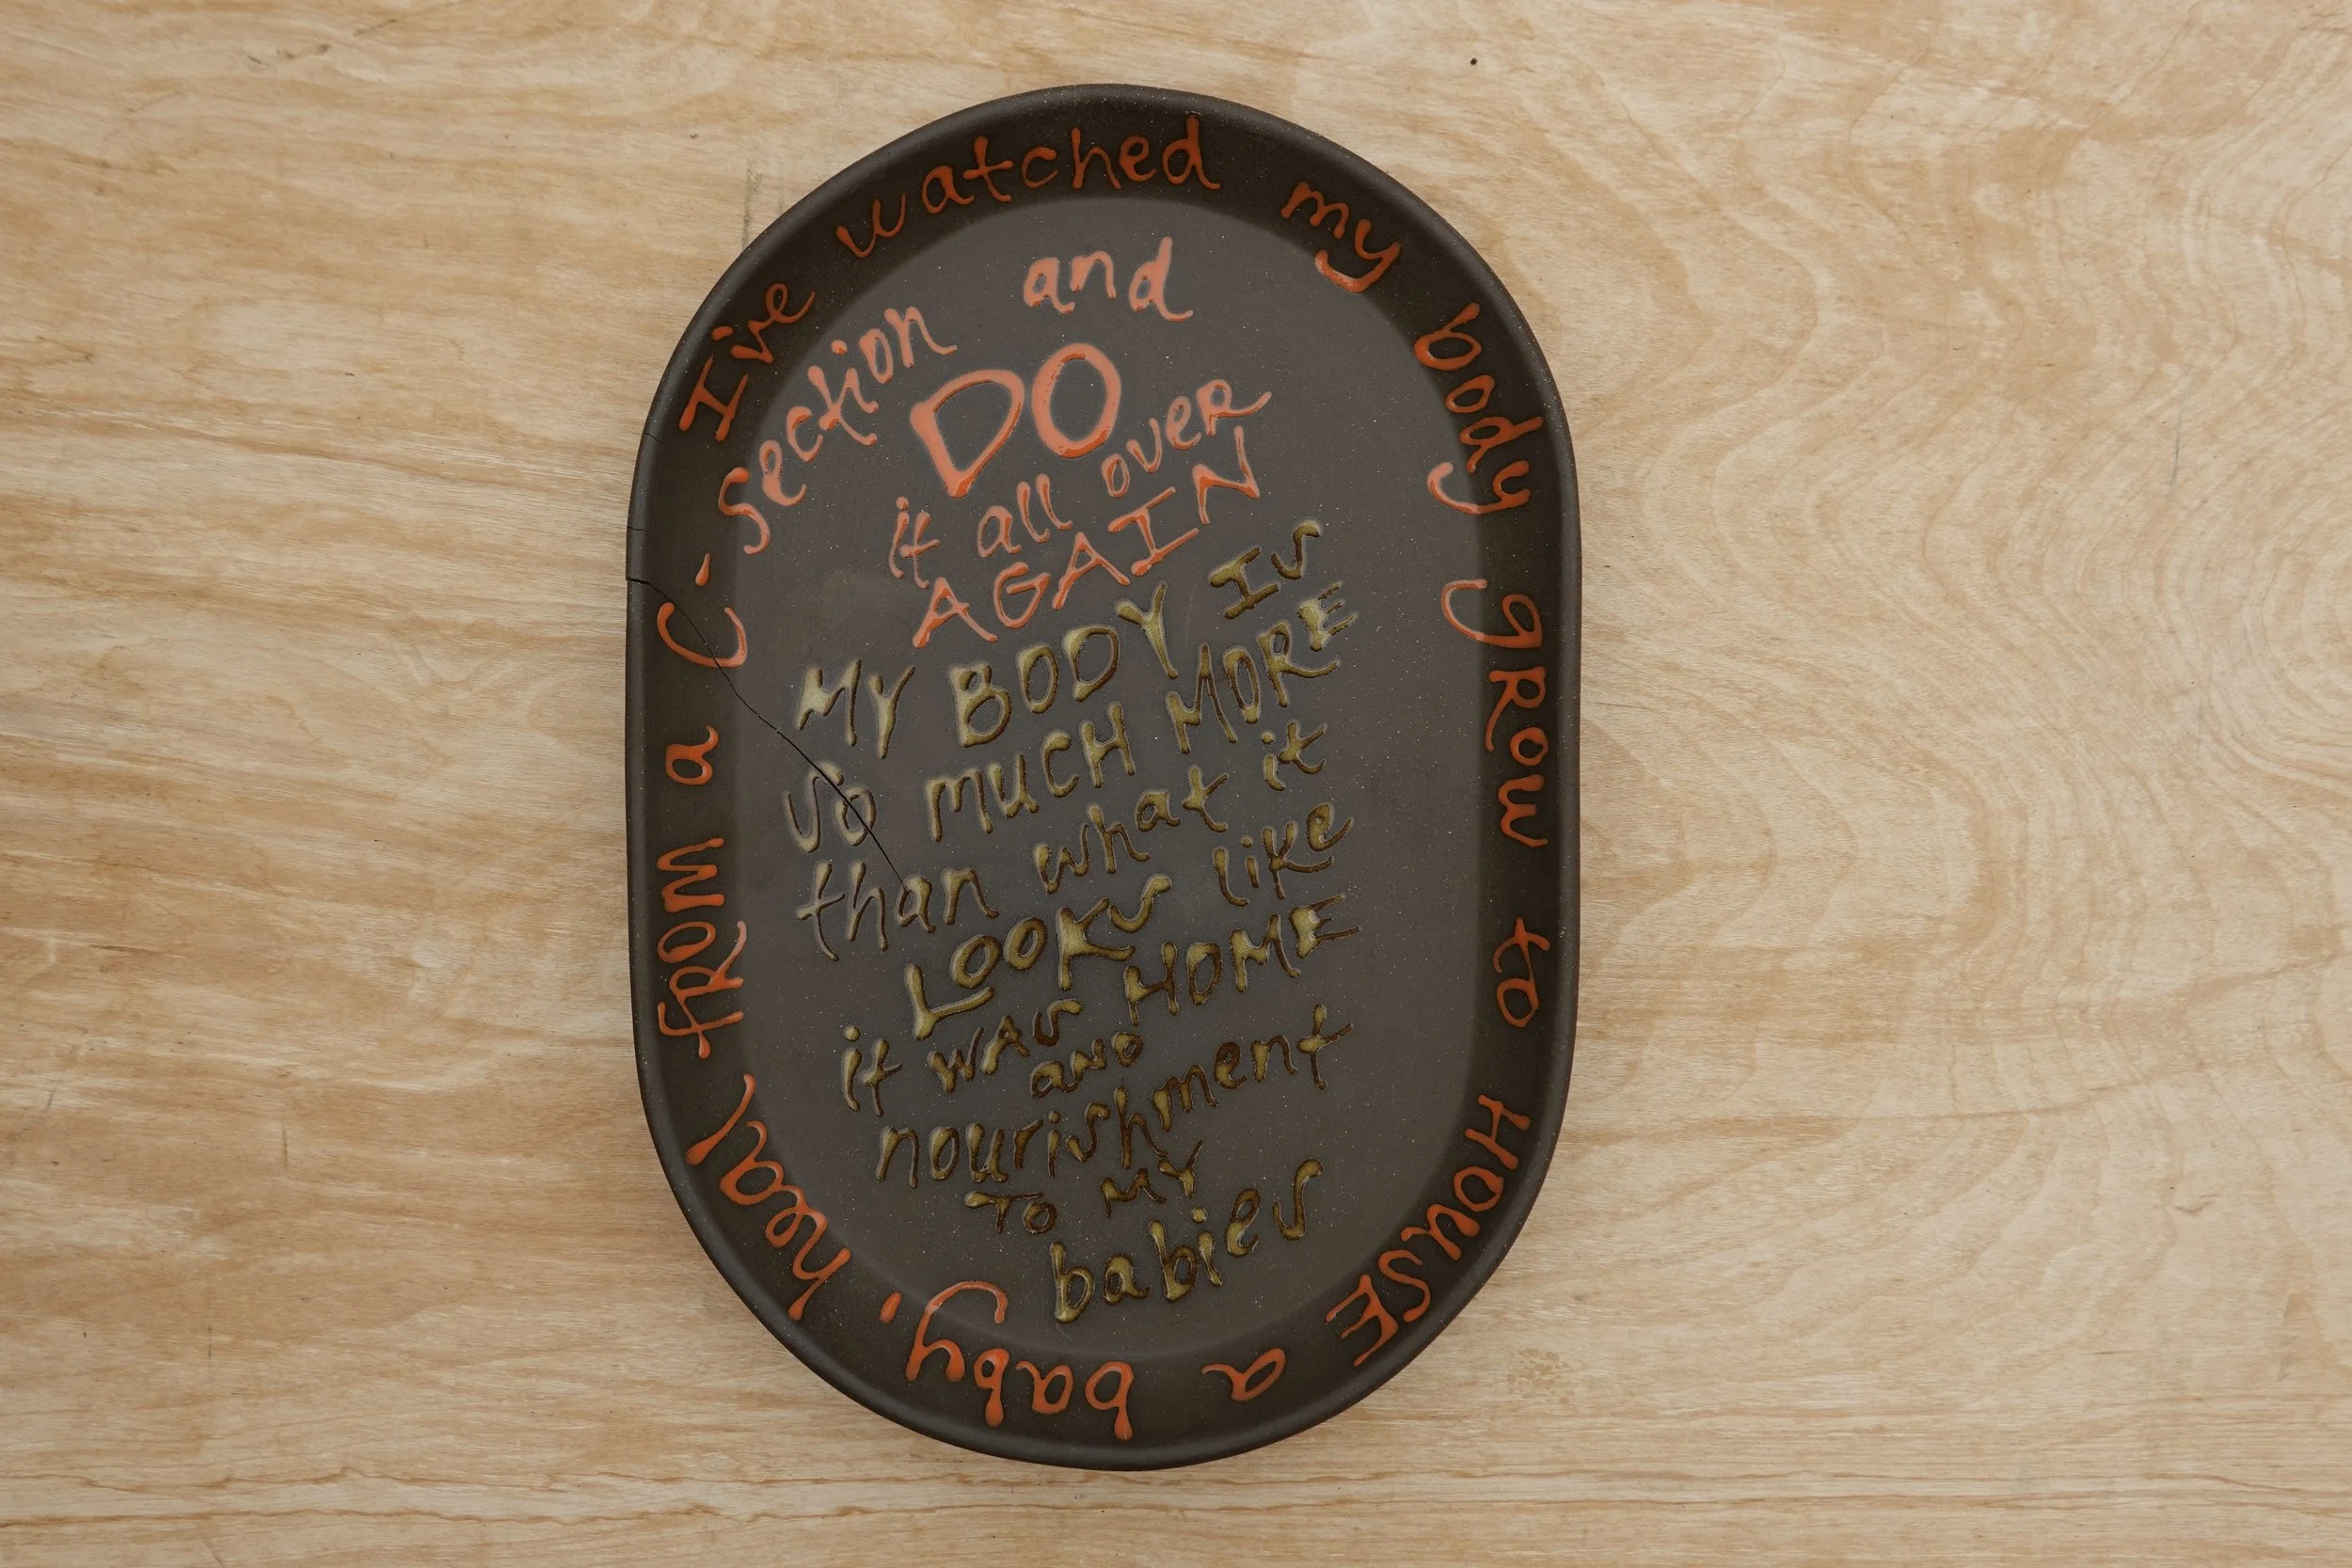 I've watched my body grow to HOUSE a baby, heal from a C-section and
DO
it all over
AGAIN
MY BODY IS
SO MUCH MORE
than what it
LOOKS like
it WAS HOME
AND
nourishment
TO MY
babies